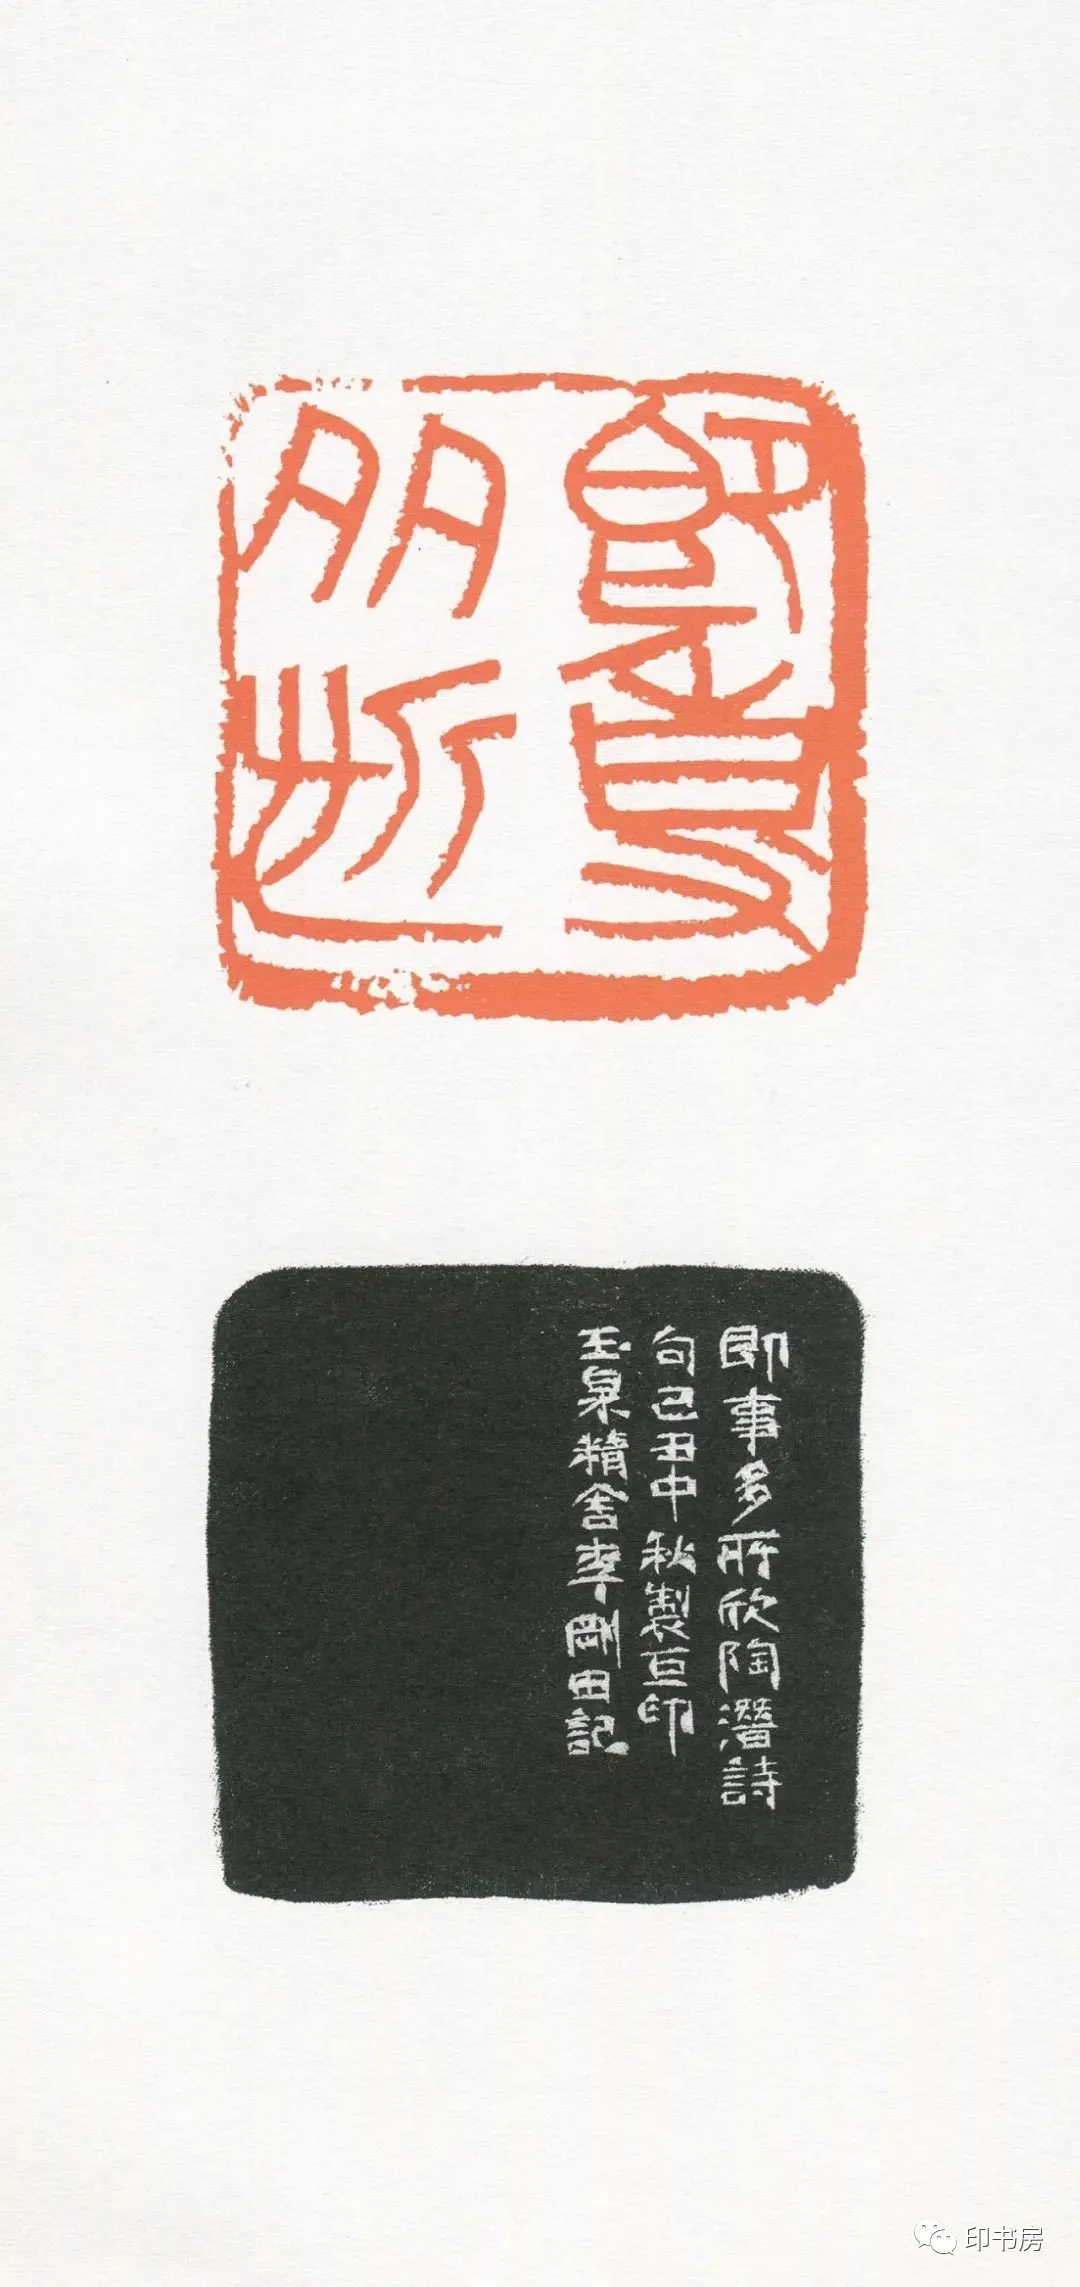 即事
多
即事多所欣陶潛詩
句己丑中秋製巨印
玉泉精舍李剛田記
印书房